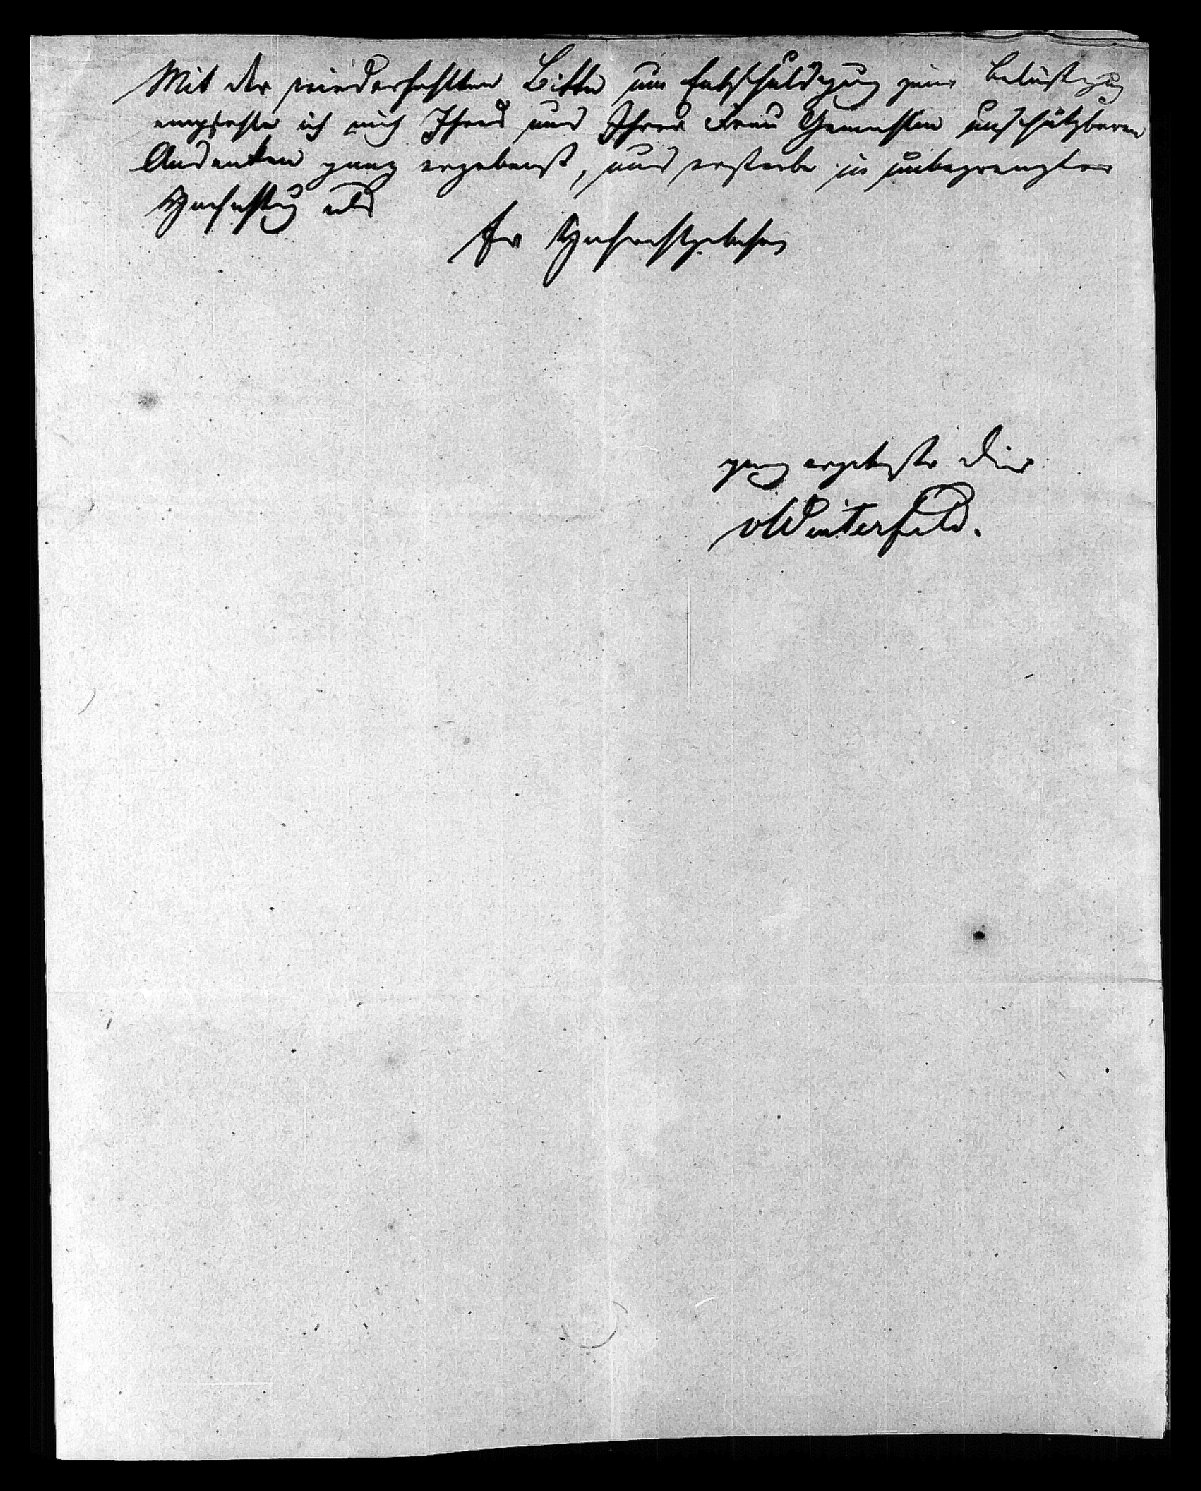 Mit der wiederhohlten Bitte um Entschuldigung jener Belästigung
empfehle ich mich Ihrem und Ihrer Frau Gemahlin unschätzbaren
Andenken ganz ergebenst, und ersterbe in unbegrenzter
Hochachtung als
Ew Hochwohlgebohren
ganz ergebenster Diener
vWinterfeld.